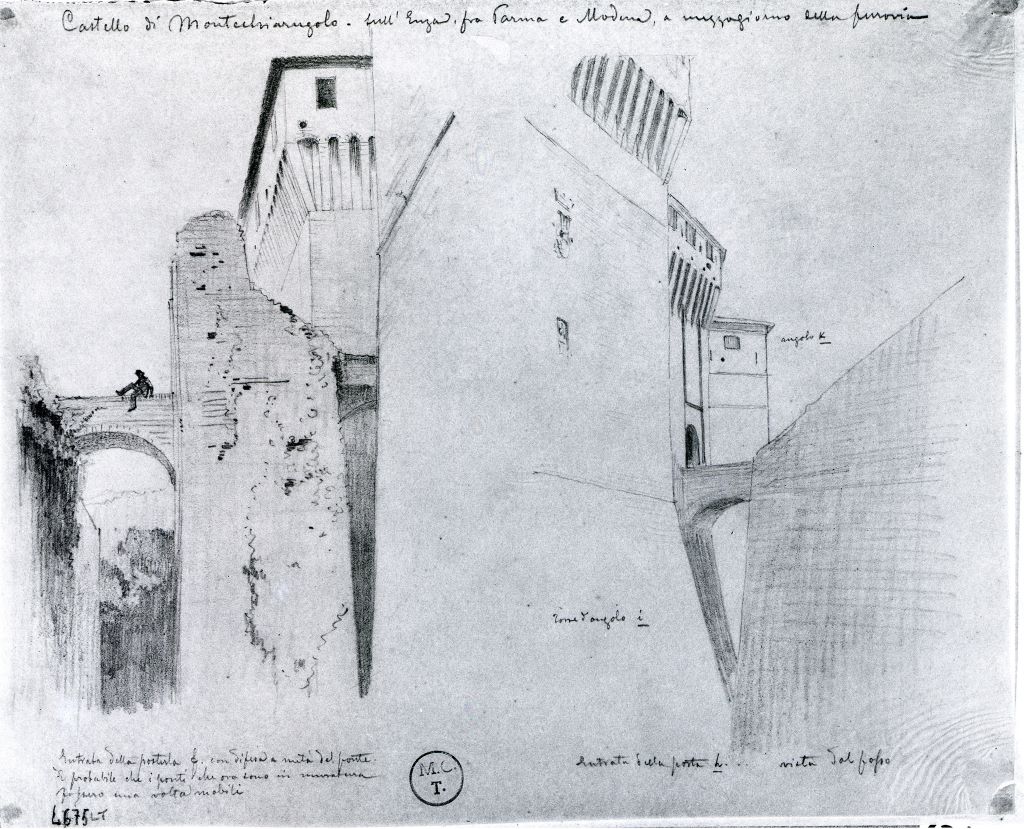 Castello di Montechiarugolo - sull'Enza, fra Parma e Modena, a mezzogiorno della ferrovia
angolo K
Torre d'angolo i
Entrata della posterla L. con difesa a metà del ponte.
È probabile che i ponti che ora sono in muratura
fossero una volta mobili
Entrata della porta h. .. vista dal fosso
M.C.
T.
4675